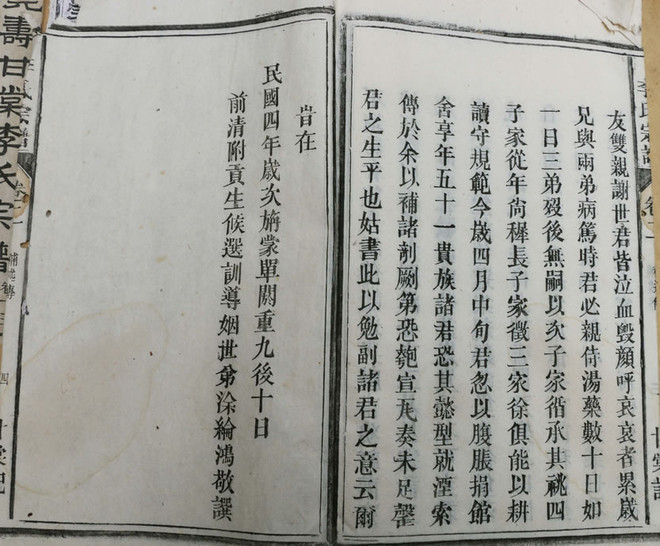 李氏宗譜
卷
友雙親謝世君皆泣血毀顏呼哀哀者累歲
兄與兩弟病篤時君必親侍湯藥數十日如
一日三弟歿後無嗣以次子家循承其祧四
子家從年尚穉長子家徵三家徐俱能以耕
讀守規範今歲四月中旬君忽以腹脹捐館
舍享年五十一貴族諸君恐其懿型就湮索
傳於余以補諸剞劂第恐匏宣瓦奏未足罄
君之生平也姑書此以勉副諸君之意云爾
旹在
民國四年歲次旃蒙單閼重九後十日
前清附貢生候選訓導姻世弟涂綸鴻敬譔
壽甘棠李氏宗譜
四